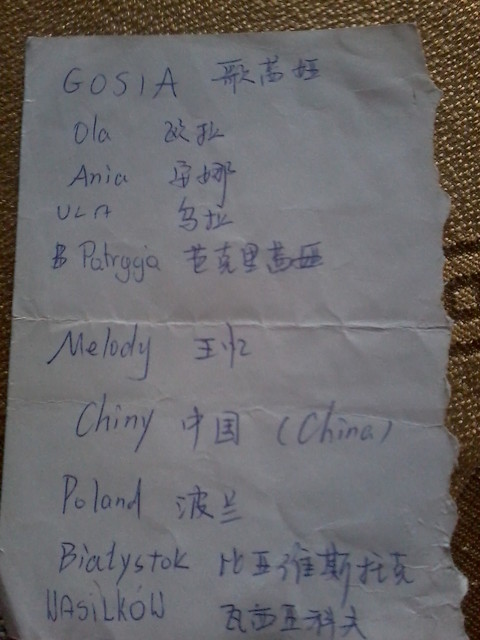 GOSIA 歌茜娅
Ola 欧拉
Ania 安娜
ULA 乌拉
Patrycja 芭克里茜娅
Melody 王忆
Chiny 中国 (China)
Poland 波兰
Białystok 比亚维斯托克
WASILKÓW 瓦西里科夫